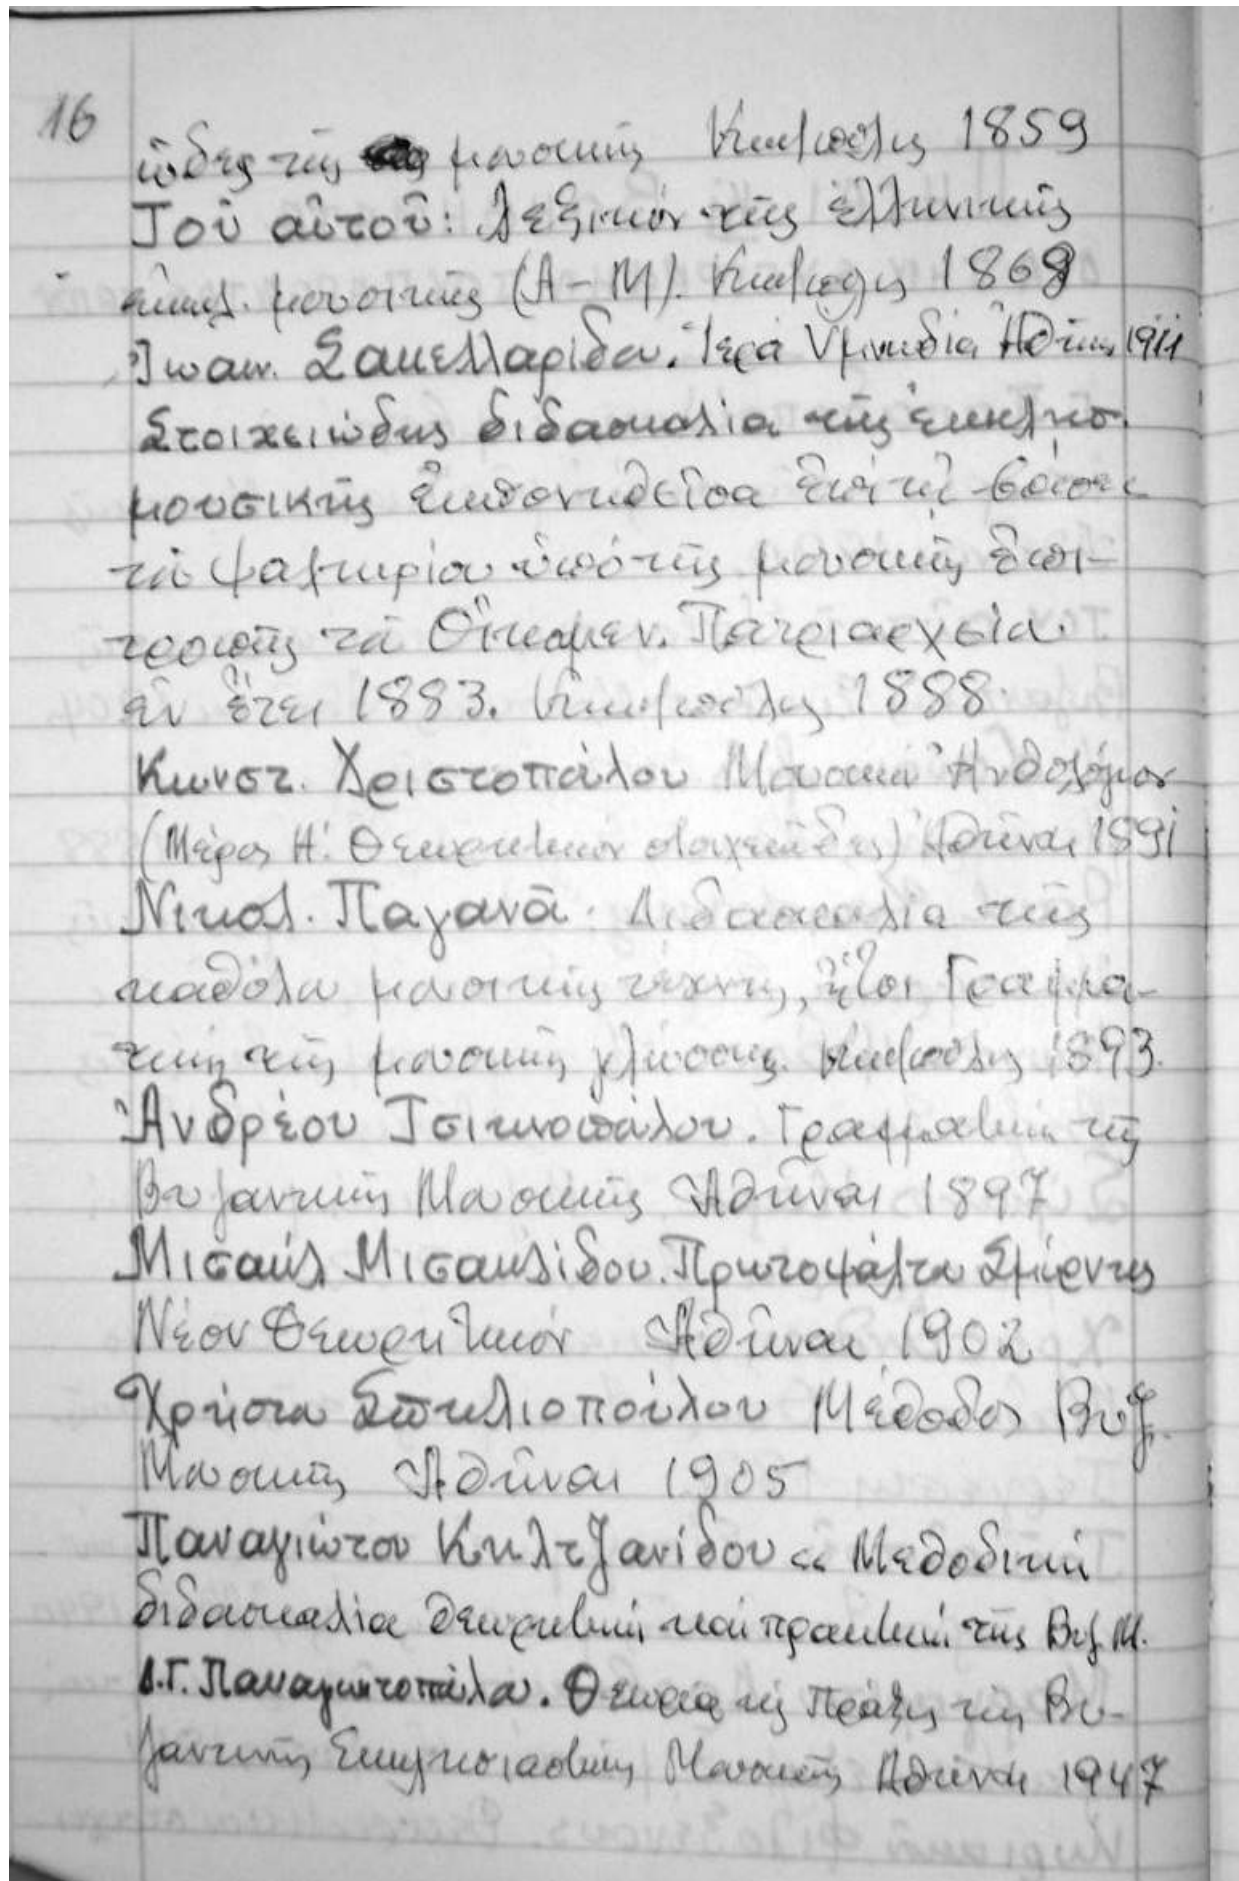 16
ώδες τῆς μουσικῆς Κων/πόλις 1859
Τοῦ αὐτοῦ: Λεξικόν τῆς ἑλληνικῆς
ἐκκλ. μουσικῆς (Α-Μ). Κων/πολις 1868
Ἰωαν. Σακελλαρίδου. Ἱερά Ὑμνωδία Ἀθῆναι 1911
Στοιχειώδης διδασκαλία τῆς ἐκκλησ.
μουσικῆς ἐκπονηθεῖσα ἐπί τῇ βάσει
τοῦ ψαλτηρίου ὑπό τῆς μουσικῆς ἐπι-
τροπῆς τοῦ Οἰκουμεν. Πατριαρχείου
ἐν ἔτει 1883. Κων/πόλις 1888.
Κωνστ. Χριστοπούλου Μουσικόν Ἀνθολόγιον
(Μέρος Α΄. Θεωρητικόν στοιχειῶδες) Ἀθῆναι 1891
Νικολ. Παγανᾶ. Διδασκαλία τῆς
καθόλου μουσικῆς τέχνης, ἤτοι Γραμμα-
τική τῆς μουσικῆς γλώσσης. Κων/πόλις 1893.
Ἀνδρέου Τσικνοπούλου. Γραμματική τῆς
Βυζαντινῆς Μουσικῆς Ἀθῆναι 1897
Μισαήλ Μισαηλίδου. Πρωτοψάλτου Σμύρνης
Νέον Θεωρητικόν Ἀθῆναι 1902
Χρήστου Μέθοδος Βυζ.
Μουσικῆς Ἀθῆναι 1905
Παναγιώτου Κηλτζανίδου « Μεθοδική
διδασκαλία θεωρητική καί πρακτική τῆς Βυζ. Μ.
Δ.Γ. Παναγιωτοπούλου. Θεωρία τῆς Πράξις τῆς Βυ-
ζαντινῆς Ἐκκλησιαστικῆς Μουσικῆς Ἀθῆναι 1947